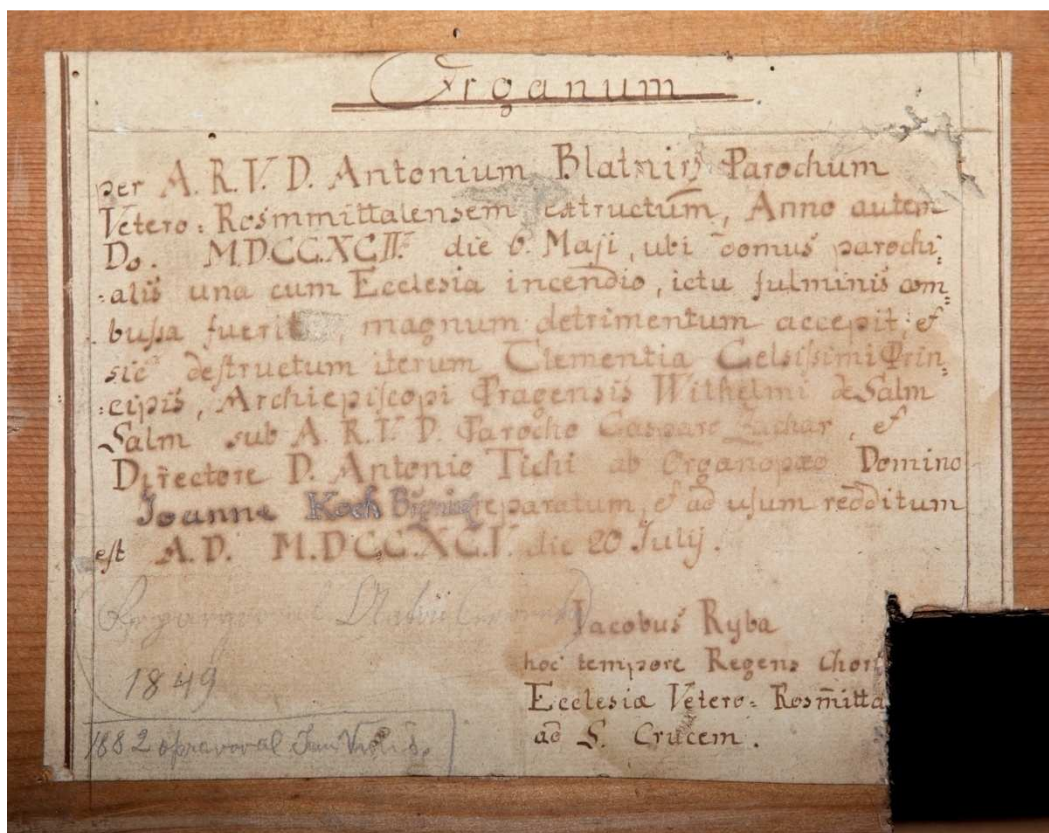 Organum.
per A. R. V. D. Antonium Blatnij Parochum
Vetero: Rosmmittalensem extructum, Anno autem
Do. M.DCC.XCII. die 6. Maji, ubi domus parochi:
:alis una cum Ecclesia incendio, ictu fulminis com
buſsa fuerit, magnum detrimentum accepit, et
sic deſtructum iterum Clementia Celsiſsimi Prin:
:cipis, Archiepiſcopi Pragensis Wilhelmi de Salm
Salm sub A. R. V. D. Parocho Gaspare Zachar, et
Directore D. Antonio Tichi ab Organopæo Domino
Joanne Koch reparatum, et ad uſum redditum
eſt A.D. M.DCC.XC.V. die 20 Julij.
Jacobus Ryba
hoc tempore Regens Chori
Ecclesiæ Vetero: Rosm̄itta
ad S. Crucem.
1849
1882 opravoval Jan